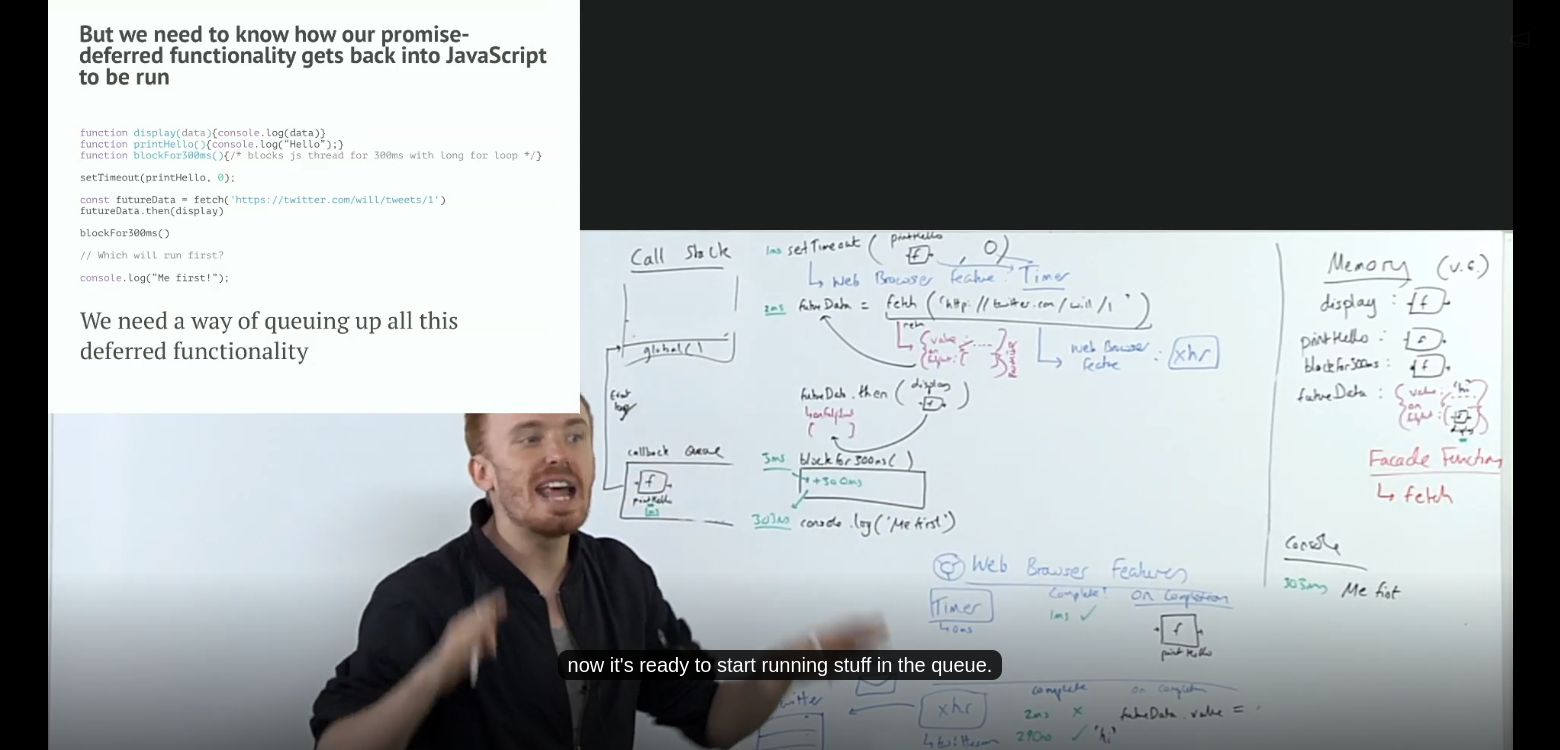 But we need to know how our promise-
deferred functionality gets back into JavaScript
to be run
function display(data){console.log(data)}
function printHello(){console.log("Hello");}
function blockFor300ms(){/* blocks js thread for 300ms with long for loop */}
setTimeout(printHello, 0);
const futureData = fetch('https://twitter.com/will/tweets/1')
futureData.then(display)
blockFor300ms()
// Which will run first?
console.log("Me first!");
We need a way of queuing up all this
deferred functionality
Call Stack
global()
callback Queue
f
printHello
1ms
1ms setTimeout ( printHello f , 0)
↳ Web Browser Feature : Timer
2ms futureData = fetch ('http://twitter.com/will/1')
Web Browser
Feature : xhr
futureData.then ( display f )
3ms blockfor300ms( )
+300ms
303ms console.log('Me first')
Memory (v.e.)
display : f
printHello : f
blockfor300ms : f
futureData : { value : 'hi'
display
Facade Function
↳ fetch
Console
303ms Me fist
Web Browser Features
Timer
↳ 0ms
Complete?
1ms ✓
On Completion
f
printHello
xhr
complete
2ms x
290ms ✓ 'hi'
on complet
futureData.value =
now it's ready to start running stuff in the queue.